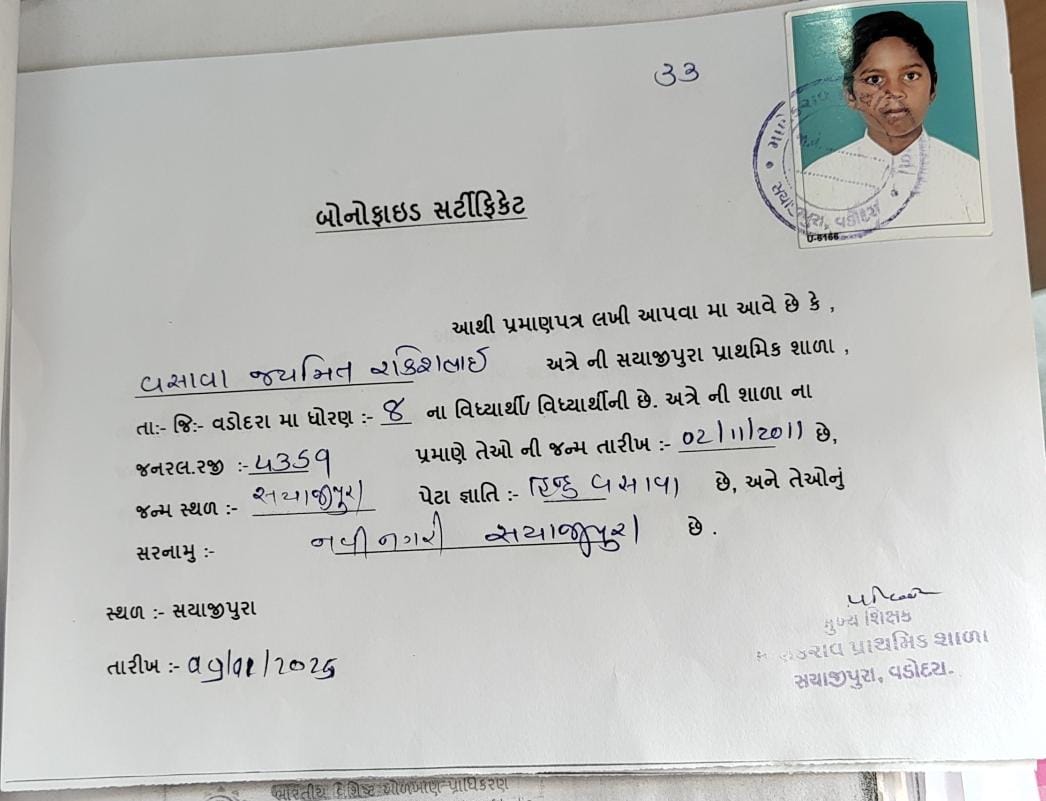 33
બોનોફાઇડ સર્ટીફિકેટ
આથી પ્રમાણપત્ર લખી આપવા મા આવે છે કે ,
વસાવા જયમિત રાકેશભાઈ અત્રે ની સયાજીપુરા પ્રાથમિક શાળા ,
તાઃ- જિઃ- વડોદરા મા ધોરણ :- 8 ના વિધ્યાર્થી/ વિધ્યાર્થીની છે. અત્રે ની શાળા ના
જનરલ.રજી :- 4359 પ્રમાણે તેઓ ની જન્મ તારીખ :- 02/11/2011 છે,
જન્મ સ્થળ :- સયાજીપુરા પેટા જ્ઞાતિ :- હિન્દુ વસાવા છે, અને તેઓનું
સરનામુ :- નવીનગરી સયાજીપુરા છે .
સ્થળ :- સયાજીપુરા
તારીખ :-
મુખ્ય શિક્ષક
પ્રાથમિક શાળા
સયાજીપુરા, વડોદરા.
સયાજીપુરા, વડોદરા
U-6166
ભારતીય વિશિષ્ટ ઓળખાણ પ્રાધિકરણ